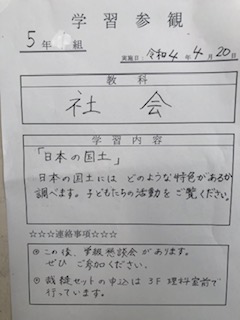 学習参観
5年 組
実施日：令和4年4月20日
教科
社会
学習内容
「日本の国土」
日本の国土には どのような特色があるか
調べます。子どもたちの活動をご覧ください。
☆☆☆連絡事項☆☆☆
◎この後、学級懇談会があります。
ぜひ ご参加ください。
◎裁縫セットの申込は 3F 理科室前で
行っています。